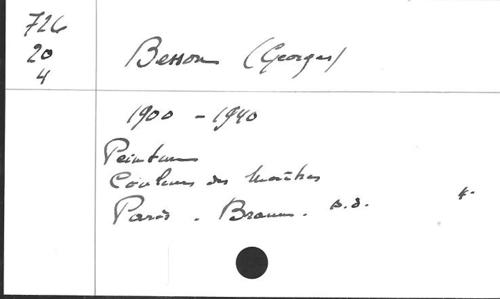 726
20
4
Besson (Georges)
1900 - 1940
Peinture
Couleurs des Maîtres
Paris. Braun. s.d.